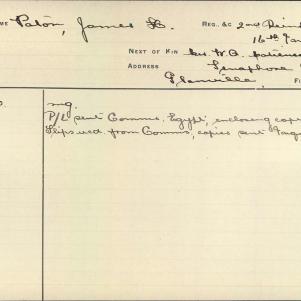 ME Paton, James H. REG. &C 2nd Rein
16th
NEXT OF KIN Mrs W. A. Paterson
ADDRESS Senaphore
Glanville F
mg.
P/L sent Comms. Egypt, enclosing copi
Slips recd. from Comms, copies sent